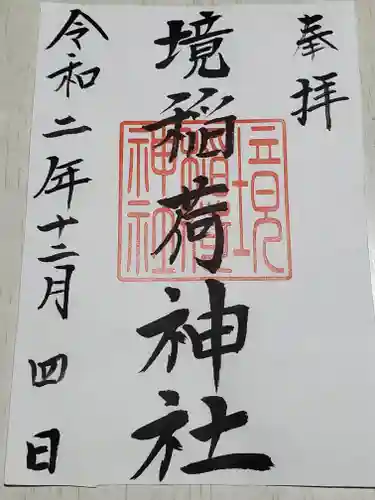 奉拝
境稲荷神社
令和二年十二月四日
境稲荷神社